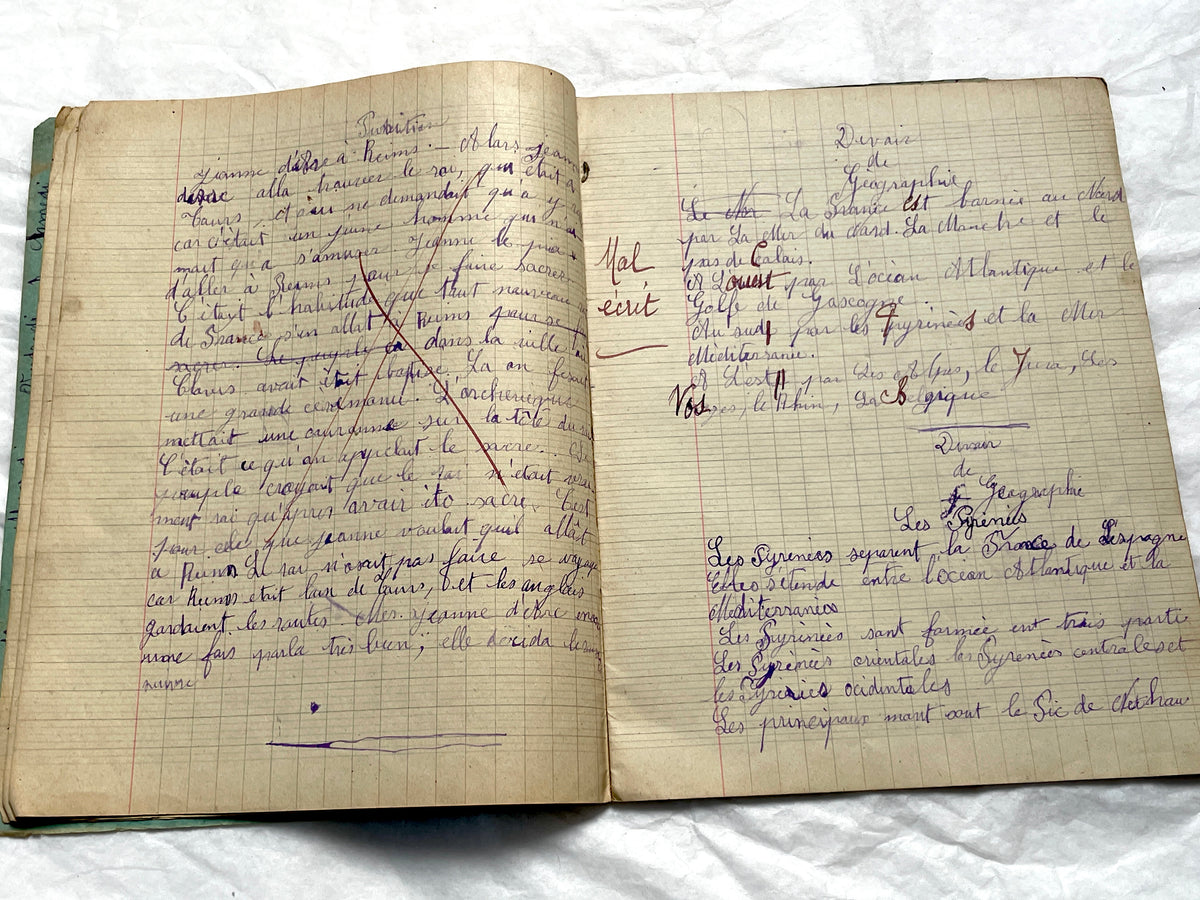 Punition
Jeanne d'arc à Reims. — Alors Jeanne
d'arc alla trouver le roi, qui était à
Tours,
car c'était un jeune homme qui n'ai
mait qu'a s'amuser Jeanne le
d'aller à Reims pour se faire sacrer
C'était l'habitude que tout nouveau
de France s'en allat à Reims pour se
sacrer. Le peuple dans la ville
Clovis avait était baptisé. La on fesait
une grande ceremonie. L'archeveque
mettait une couronne sur la tête du
C'était ce qu'on appelait le sacre.
peuple croyait que le roi n'était vrai
ment roi qu'apres avoir éte sacre. C'est
pour cela, que Jeanne voulait quel allât
a Reims Le roi n'osait pas faire se voyage
car Reims était loin de Tours, et les anglais
gardaient les routes. Mes. Jeanne d'Arc
une fois parla tres bien; elle décida
Devoir
de
Géographie
La France est bornée au Nord
par La Mer du Nord. La Manche et le
pas de Calais.
Mal
écrit
A L'ouest par L'océan Atlantique et le
Golfe de Gascogne.
Au sud par les Pyrinées et la Mer
Méditerranée.
A L'est par Les Alpes, le Jura, Les
Vosges, le Rhin, La Belgique
Devoir
de
Géographie
Les Pyrénées
Les Pyrenées separent la France de L'espagne
Elles s'étende entre l'océan Atlantique et la
Mediterranée
Les Pyrinées sont formée ent trois partie
Les Pyrénées orientales les Pyrenées centrales et
les Pyrenées ocidintales
Les principaux mont sont le Pic de Nethou